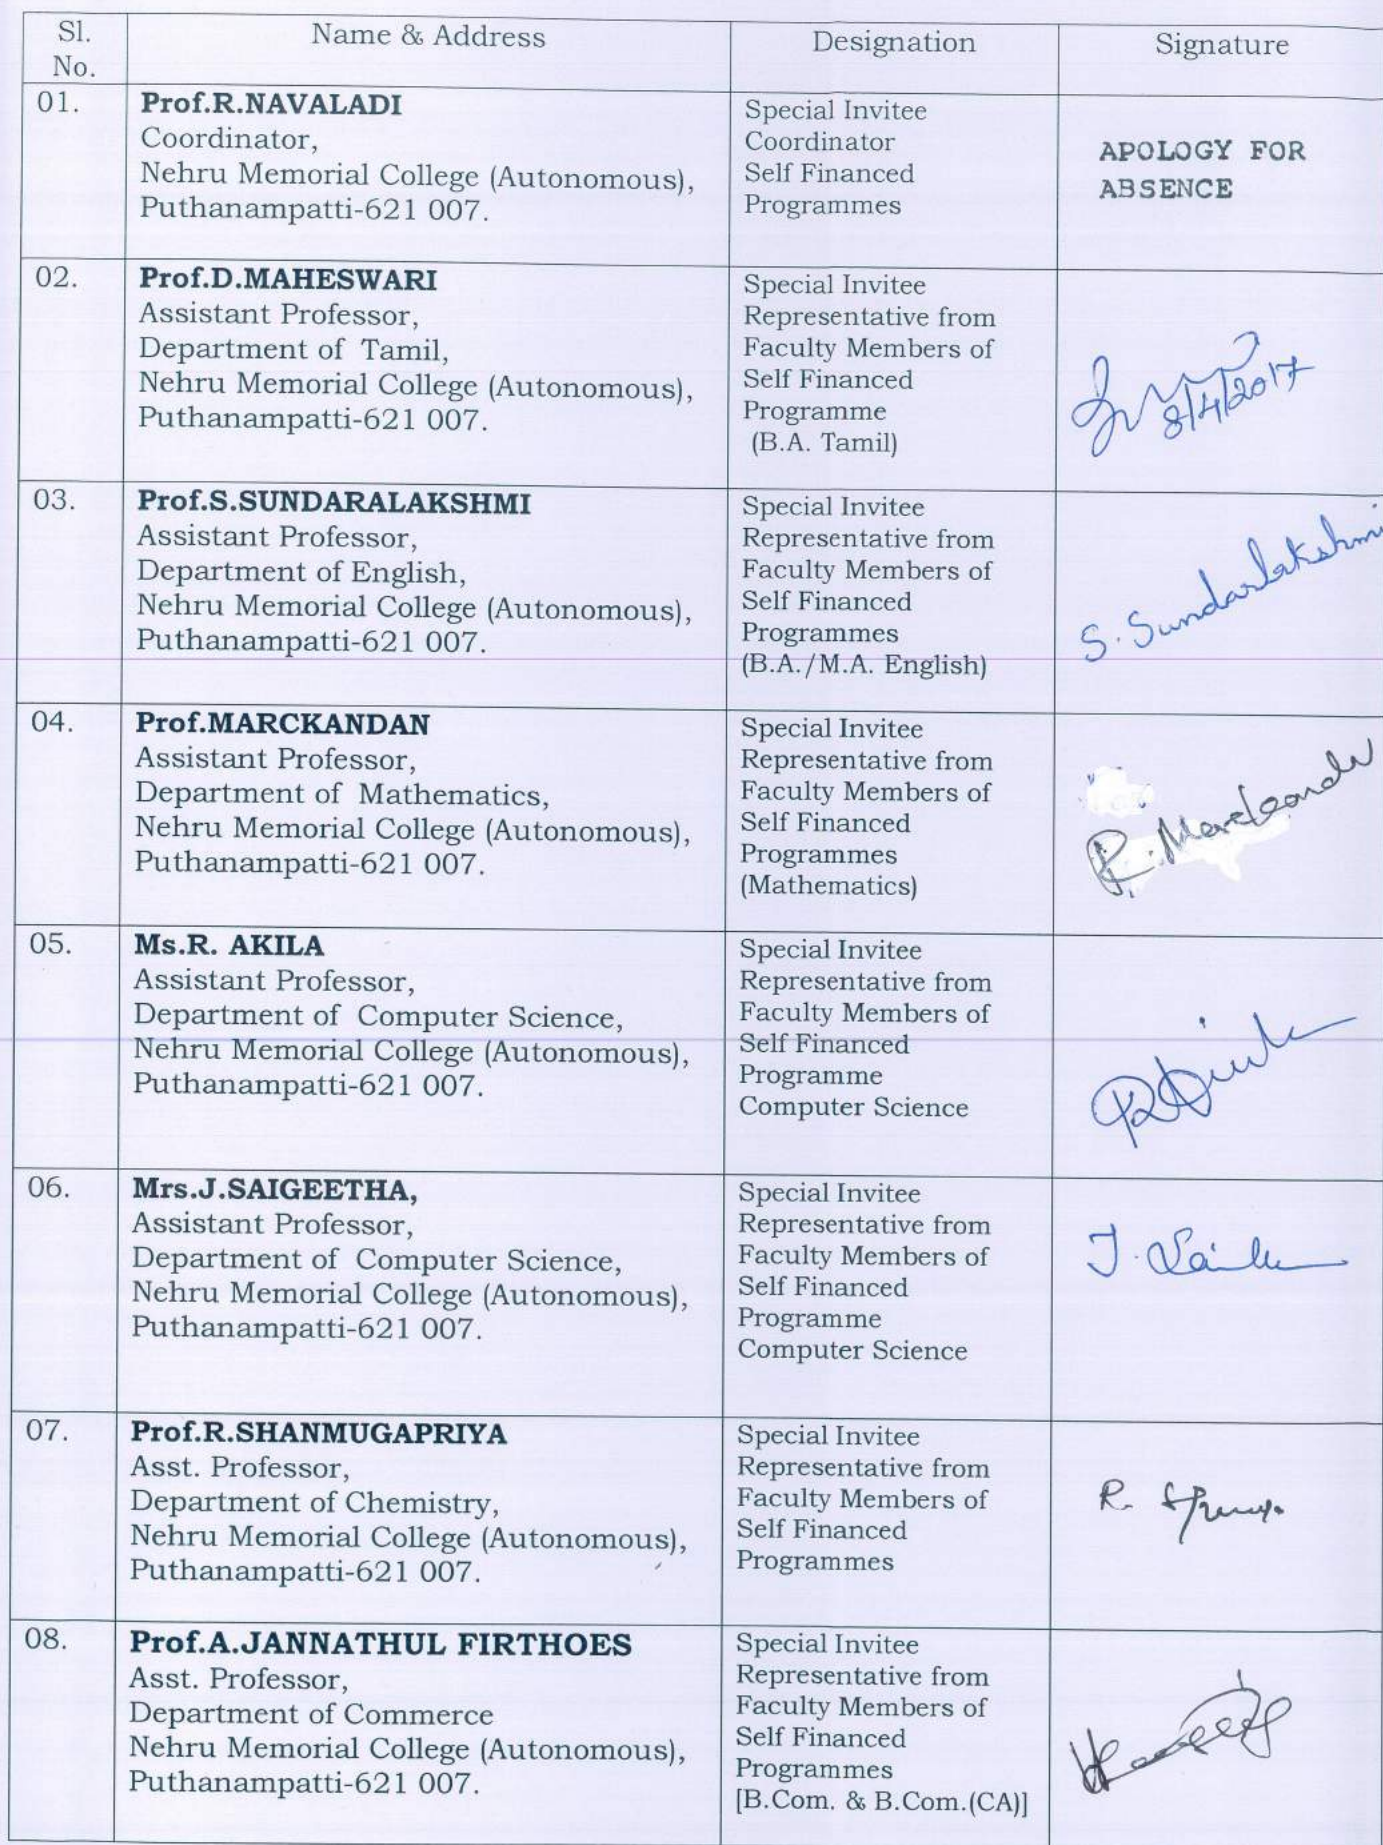 Sl.
No.
Name & Address
Designation
Signature
01.
Prof.R.NAVALADI
Coordinator,
Nehru Memorial College (Autonomous),
Puthanampatti-621 007.
Special Invitee
Coordinator
Self Financed
Programmes
APOLOGY FOR
ABSENCE
02.
Prof.D.MAHESWARI
Assistant Professor,
Department of Tamil,
Nehru Memorial College (Autonomous),
Puthanampatti-621 007.
Special Invitee
Representative from
Faculty Members of
Self Financed
Programme
(B.A. Tamil)
8/4/2017
03.
Prof.S.SUNDARALAKSHMI
Assistant Professor,
Department of English,
Nehru Memorial College (Autonomous),
Puthanampatti-621 007.
Special Invitee
Representative from
Faculty Members of
Self Financed
Programmes
(B.A./M.A. English)
S. Sundarlakshmi
04.
Prof.MARCKANDAN
Assistant Professor,
Department of Mathematics,
Nehru Memorial College (Autonomous),
Puthanampatti-621 007.
Special Invitee
Representative from
Faculty Members of
Self Financed
Programmes
(Mathematics)
05.
Ms.R. AKILA
Assistant Professor,
Department of Computer Science,
Nehru Memorial College (Autonomous),
Puthanampatti-621 007.
Special Invitee
Representative from
Faculty Members of
Self Financed
Programme
Computer Science
06.
Mrs.J.SAIGEETHA,
Assistant Professor,
Department of Computer Science,
Nehru Memorial College (Autonomous),
Puthanampatti-621 007.
Special Invitee
Representative from
Faculty Members of
Self Financed
Programme
Computer Science
07.
Prof.R.SHANMUGAPRIYA
Asst. Professor,
Department of Chemistry,
Nehru Memorial College (Autonomous),
Puthanampatti-621 007.
Special Invitee
Representative from
Faculty Members of
Self Financed
Programmes
08.
Prof.A.JANNATHUL FIRTHOES
Asst. Professor,
Department of Commerce
Nehru Memorial College (Autonomous),
Puthanampatti-621 007.
Special Invitee
Representative from
Faculty Members of
Self Financed
Programmes
[B.Com. & B.Com.(CA)]